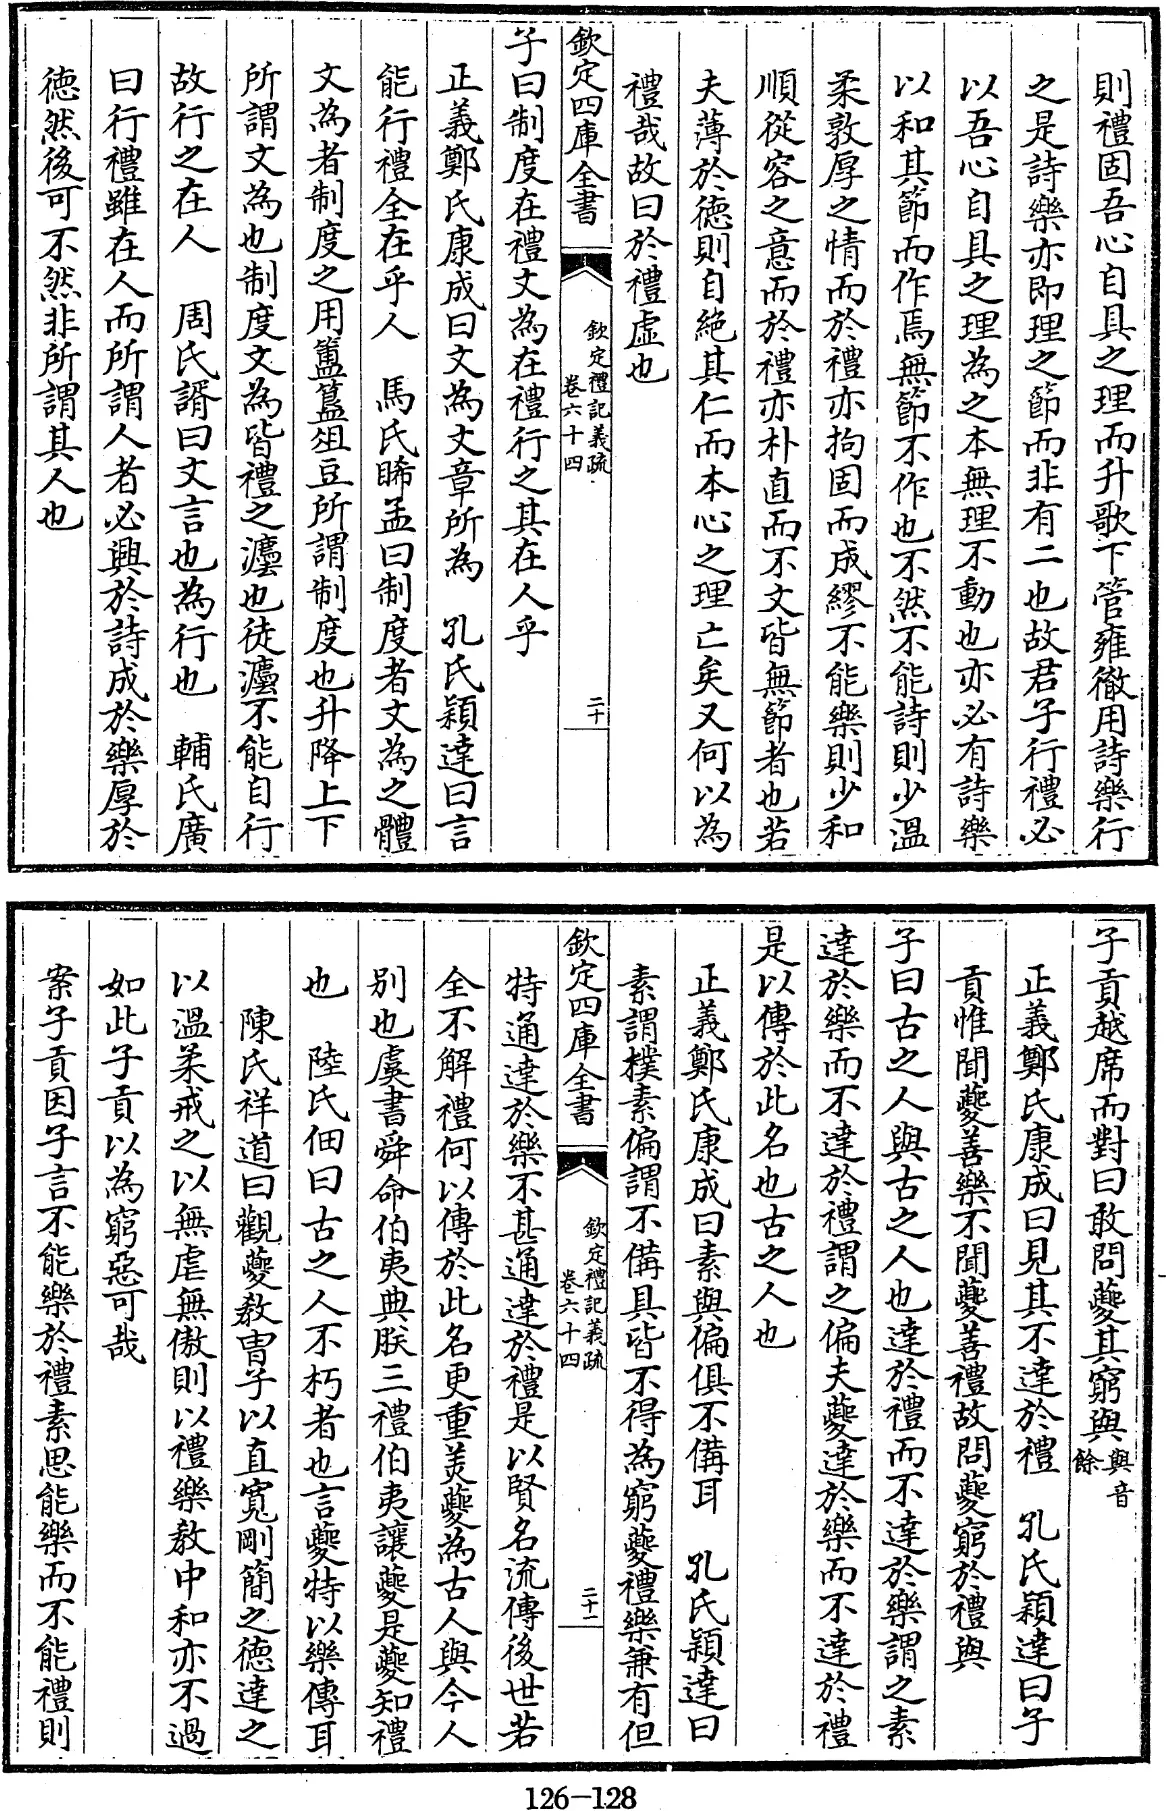 則禮固吾心自具之理而升歌下管雍徹用詩樂行
之是詩樂亦即理之節而非有二也故君子行禮必
以吾心自具之理為之本無理不動也亦必有詩樂
以和其節而作焉無節不作也不然不能詩則少溫
柔敦厚之情而於禮亦拘固而成繆不能樂則少和
順從容之意而於禮亦朴直而不文皆無節者也若
夫薄於德則自絶其仁而本心之理亡矣又何以為
禮哉故曰於禮虛也
欽定四庫全書
欽定禮記義疏
卷六十四
二十
子曰制度在禮文為在禮行之其在人乎
正義鄭氏康成曰文為文章所為 孔氏穎達曰言
能行禮全在乎人 馬氏睎孟曰制度者文為之體
文為者制度之用簠簋俎豆所謂制度也升降上下
所謂文為也制度文為皆禮之灋也徒灋不能自行
故行之在人 周氏諝曰文言也為行也 輔氏廣
曰行禮雖在人而所謂人者必興於詩成於樂厚於
徳然後可不然非所謂其人也
子貢越席而對曰敢問夔其窮與與音餘
正義鄭氏康成曰見其不達於禮 孔氏穎達曰子
貢惟聞夔善樂不聞夔善禮故問夔窮於禮與
子曰古之人與古之人也達於禮而不達於樂謂之素
達於樂而不達於禮謂之偏夫夔達於樂而不達於禮
是以傳於此名也古之人也
正義鄭氏康成曰素與偏俱不備耳 孔氏穎達曰
素謂樸素偏謂不備具皆不得為窮夔禮樂兼有但
欽定四庫全書
欽定禮記義疏
卷六十四
二十一
特通達於樂不甚通達於禮是以賢名流傳後世若
全不解禮何以傳於此名更重美夔為古人與今人
别也虞書舜命伯夷典朕三禮伯夷讓夔是夔知禮
也 陸氏佃曰古之人不朽者也言夔特以樂傳耳
陳氏祥道曰觀夔教冑子以直寬剛簡之徳達之
以溫柔戒之以無虐無傲則以禮樂教中和亦不過
如此子貢以為窮惡可哉
案子貢因子言不能樂於禮素思能樂而不能禮則
126-128